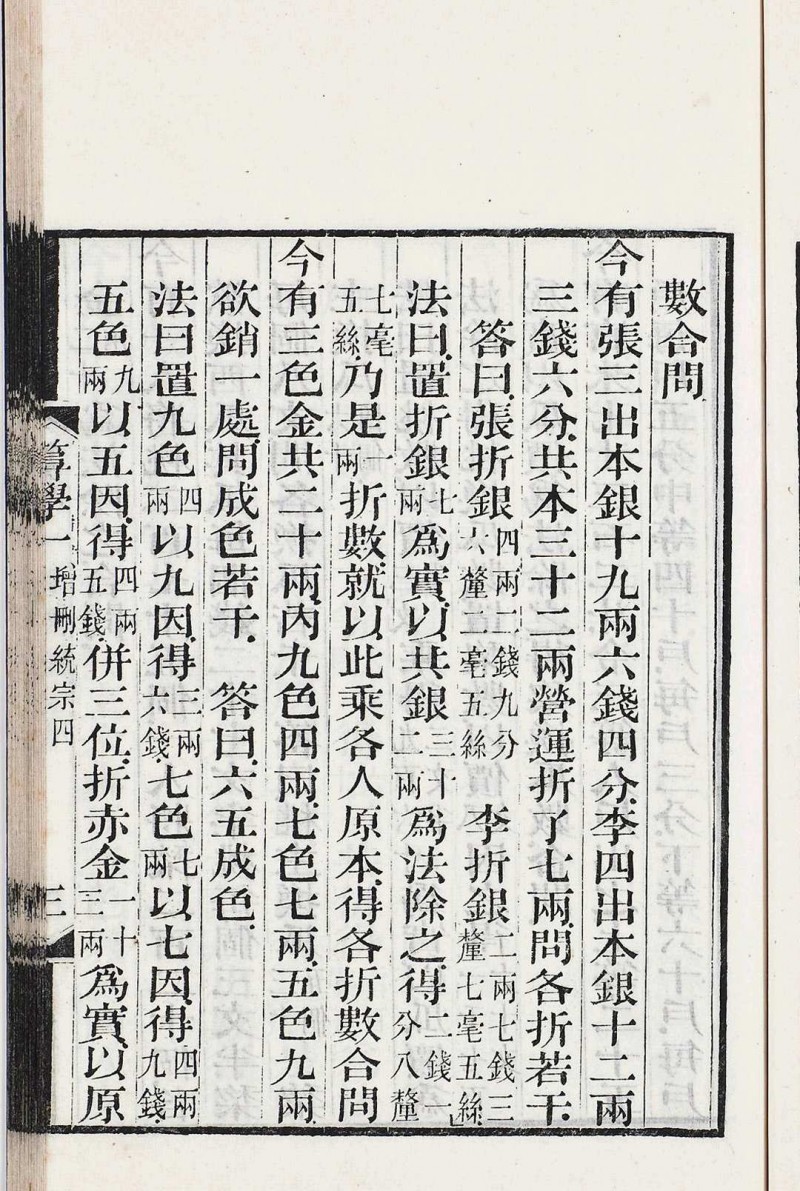 數合問
今有張三出本銀十九兩六錢四分李四出本銀十二兩
三錢六分共本三十二兩營運折了七兩問各折若干
答曰張折銀四兩二錢九分六釐二毫五絲 李折銀二兩七錢三釐七毫五絲
法曰置折銀七兩爲實以共銀三十二兩爲法除之得二錢一分八釐
七毫五絲乃是一兩折數就以此乘各人原本得各折數合問
今有三色金共二十兩內九色四兩七色七兩五色九兩
欲銷一處問成色若干 答曰六五成色
法曰置九色四兩以九因得三兩六錢七色七兩以七因得四兩九錢
五色九兩以五因得四兩五錢併三位折赤金一十三兩爲實以原
算學一 增刪統宗四 三